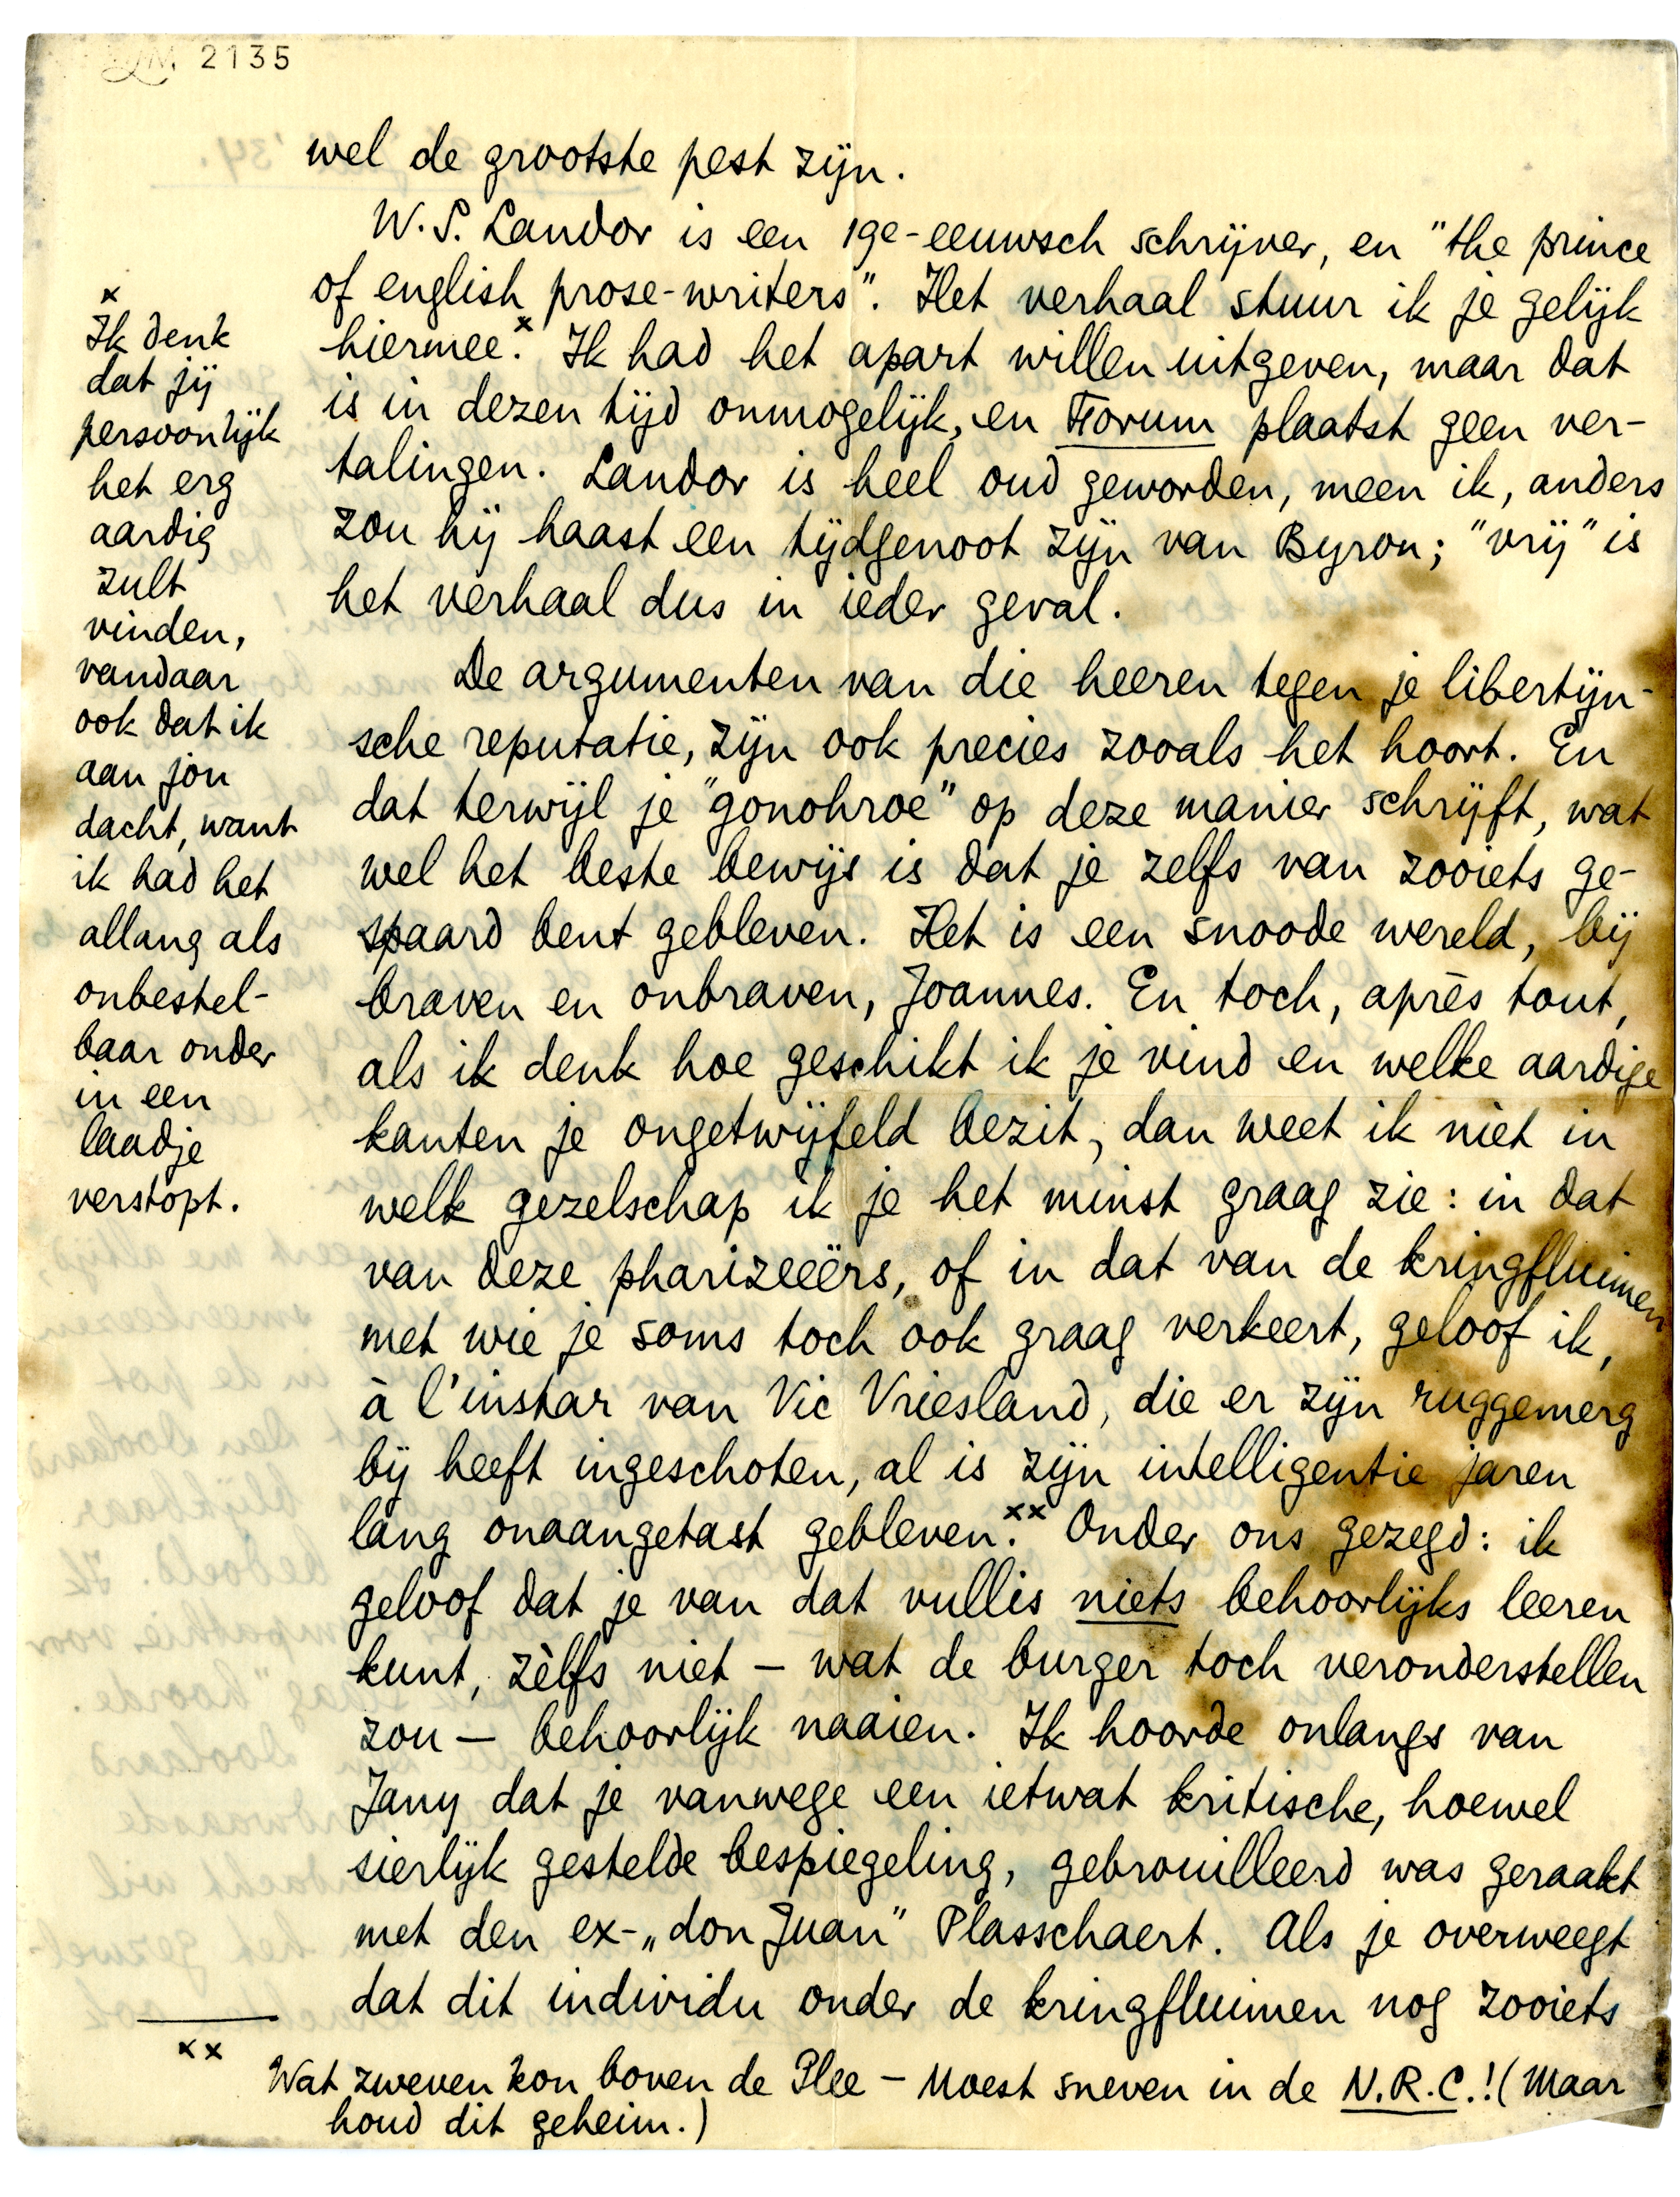 LM 2135
wel de grootste pest zijn.
W.S. Landor is een 19e-eeuwsch schrijver, en "the prince
of english prose-writers". Het verhaal stuur ik je gelijk
hiermee.x Ik had het apart willen uitgeven, maar dat
is in dezen tijd onmogelijk, en Forum plaatst geen ver-
talingen. Landor is heel oud geworden, meen ik, anders
zou hij haast een tijdgenoot zijn van Byron; "vrij" is
het verhaal dus in ieder geval.
De argumenten van die heeren tegen je libertijn-
sche reputatie, zijn ook precies zooals het hoort. En
dat terwijl je "gonohroe" op deze manier schrijft, wat
wel het beste bewijs is dat je zelfs van zooiets ge-
spaard bent gebleven. Het is een snoode wereld, bij
braven en onbraven, Joannes. En toch, après tout,
als ik denk hoe geschikt ik je vind en welke aardige
kanten je ongetwijfeld bezit, dan weet ik niet in
welk gezelschap ik je het minst graag zie: in dat
van deze pharizeeërs, of in dat van de kringfluimen
met wie je soms toch ook graag verkeert, geloof ik,
à l'instar van Vic Vriesland, die er zijn ruggemerg
bij heeft ingeschoten, al is zijn intelligentie jaren
lang onaangetast gebleven.xx Onder ons gezegd: ik
geloof dat je van dat vullis niets behoorlijks leeren
kunt, zèlfs niet – wat de burger toch veronderstellen
zou – behoorlijk naaien. Ik hoorde onlangs van
Jany dat je vanwege een ietwat kritische, hoewel
sierlijk gestelde bespiegeling, gebrouilleerd was geraakt
met den ex-„don Juan" Plasschaert. Als je overweegt
dat dit individu onder de kringfluimen nog zooiets
x
Ik denk
dat jij
persoonlijk
het erg
aardig
zult
vinden,
vandaar
ook dat ik
aan jou
dacht, want
ik had het
allang als
onbestel-
baar onder
in een
laadje
verstopt.
xx
Wat zweven kon boven de Plee – Moest sneven in de N.R.C.! (Maar
houd dit geheim.)